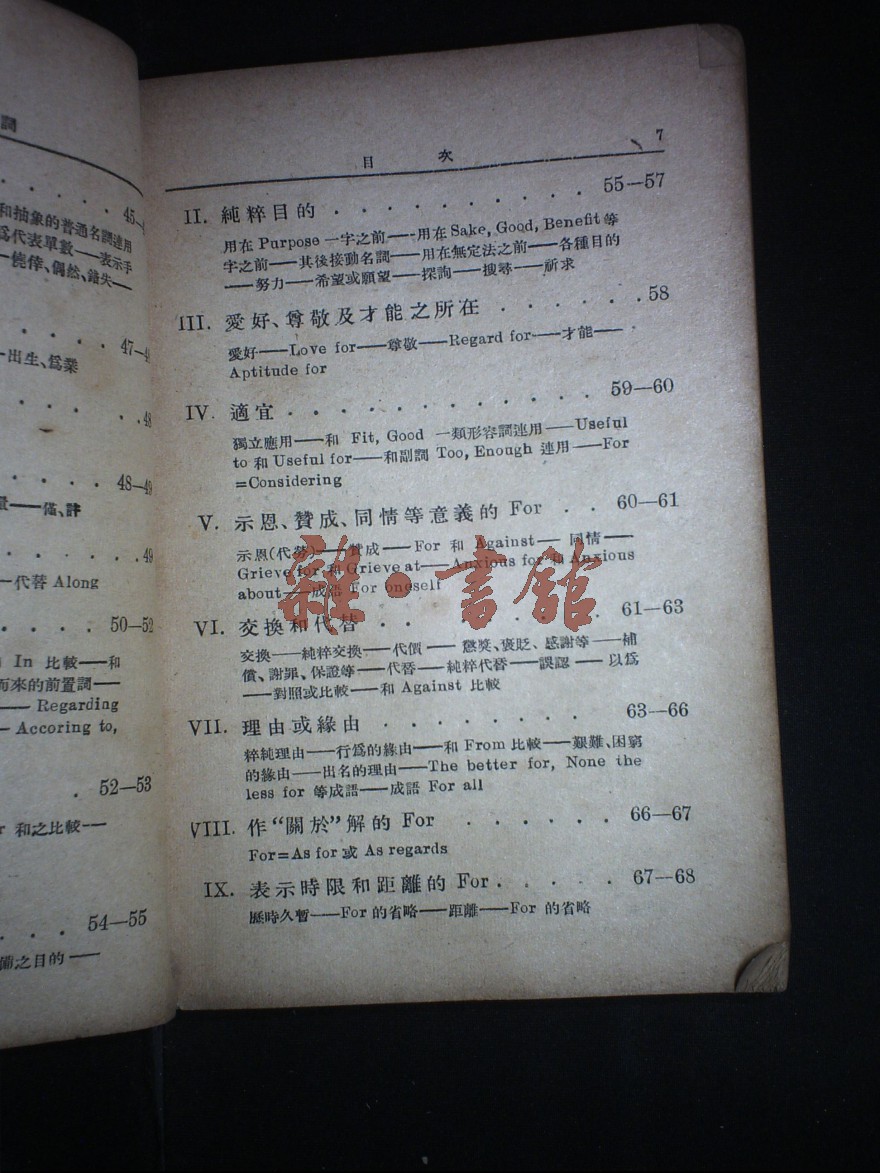 詞
45—
和抽象的普通名詞連用
爲代表單數——表示手
—僥倖、偶然、錯失——
47—4
—出生、爲業
48
48—49
49
—代替 Along
50—52
In 比較——和
而來的前置詞——
—— Regarding
— Accoring to,
52—53
和之比較——
54—55
備之目的——
目 次 7
II. 純粹目的 . . . . . . . . . . 55—57
用在 Purpose 一字之前——用在 Sake, Good, Benefit 等
字之前——其後接動名詞——用在無定法之前——各種目的
——努力——希望或願望——探詢——搜尋——祈求
III. 愛好、尊敬及才能之所在 . . . . . . 58
愛好——Love for——尊敬——Regard for——才能——
Aptitude for
IV. 適宜 . . . . . . . . . . . . 59—60
獨立應用——和 Fit, Good 一類形容詞連用——Useful
to 和 Useful for——和副詞 Too, Enough 連用——For
=Considering
V. 示恩、贊成、同情等意義的 For . . 60—61
示恩(代勞)——贊成——For 和 Against——同情——
Grieve for 和 Grieve at——Anxious for 和 Anxious
about——成語 For oneself
雜·書館
VI. 交換和代替 . . . . . . . . 61—63
交換——純粹交換——代價——懲獎、褒貶、感謝等——補
償、謝罪、保證等——代替——純粹代替——誤認——以爲
——對照或比較——和 Against 比較
VII. 理由或緣由 . . . . . . . . 63—66
粹純理由——行爲的緣由——和 From 比較——艱難、困窮
的緣由——出名的理由——The better for, None the
less for 等成語——成語 For all
VIII. 作“關於”解的 For . . . . . . 66—67
For=As for 或 As regards
IX. 表示時限和距離的 For . . . . . 67—68
歷時久暫——For 的省略——距離——For 的省略